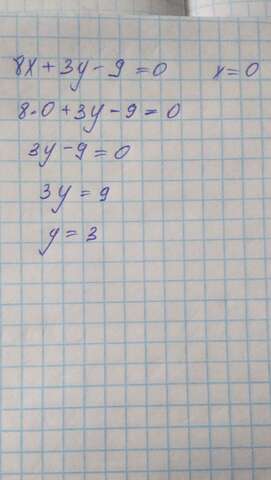 8x + 3y - 9 = 0 x = 0
8·0 + 3y - 9 = 0
3y - 9 = 0
3y = 9
y = 3